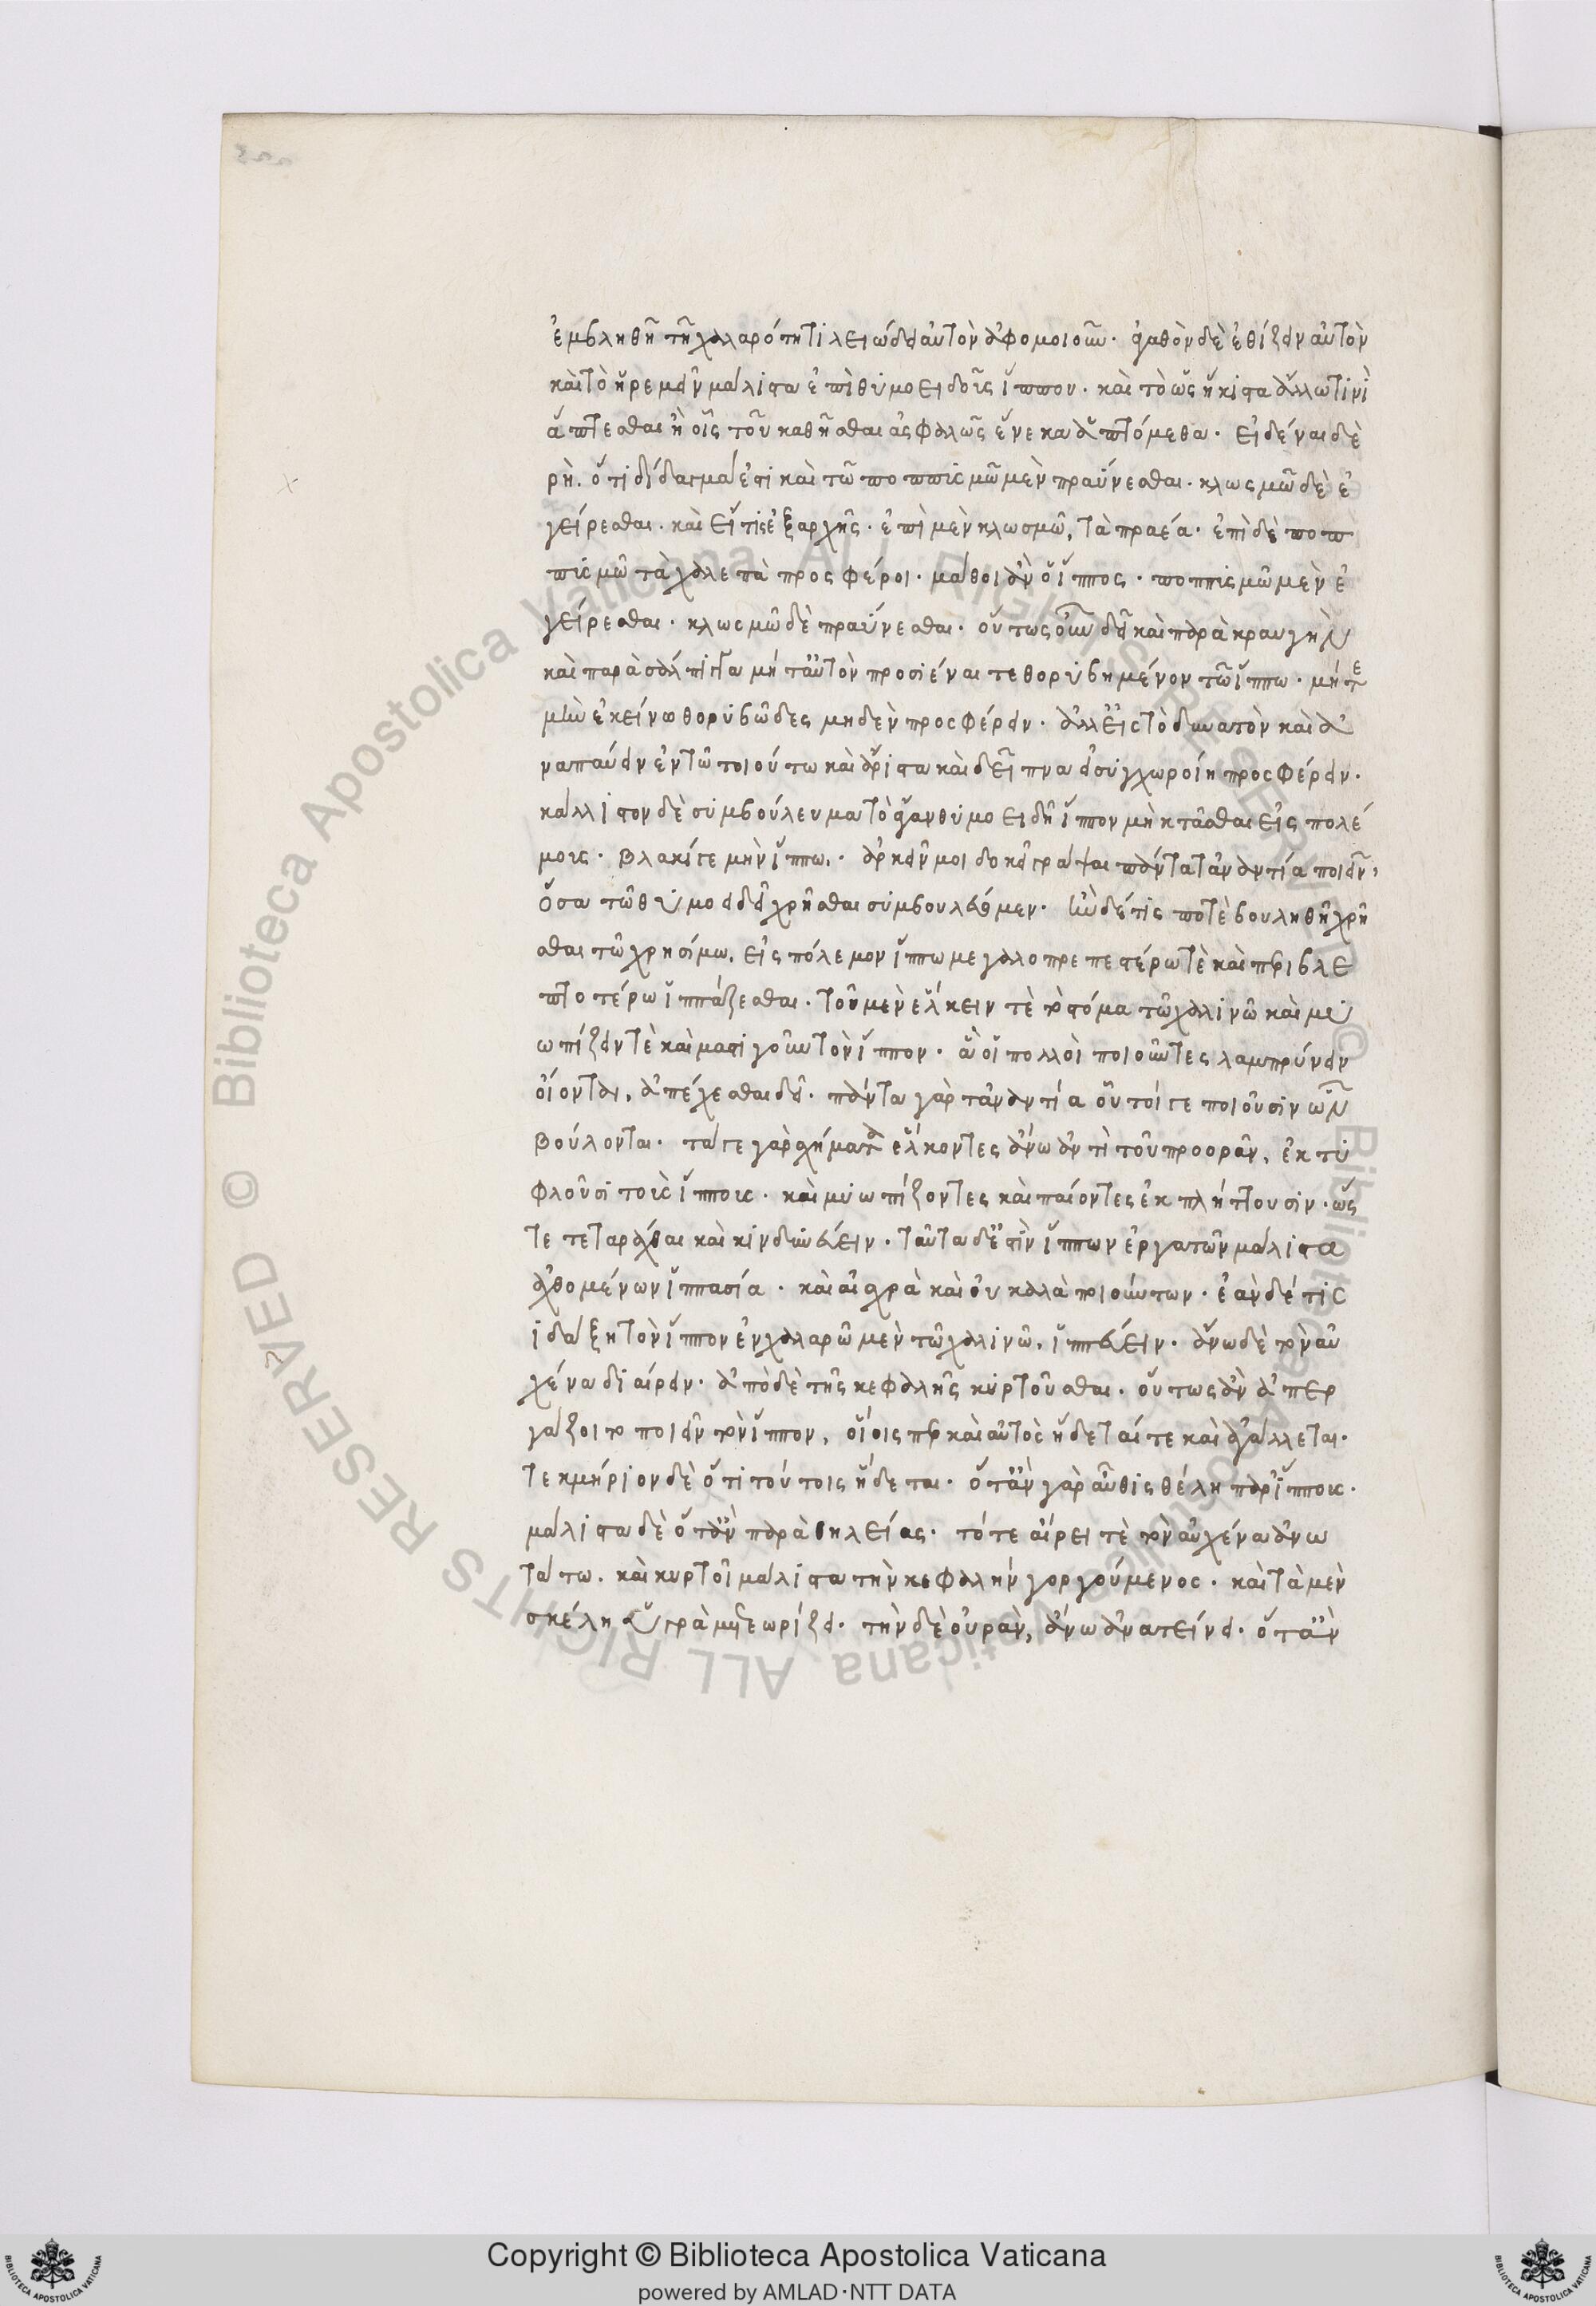 ἐμβληθῆ τῆ χαλαρότητι λειώδει αὐτὸν ἀφομοιοῦν· ἀγαθὸν δὲ ἐθίζειν αὐτὸν
καὶ τὸ ἠρεμεῖν μάλιστα ἐπὶ θυμοειδοῦς ἵππον· καὶ τὸ ὡς ἥκιστα ἄλλω τινὶ
ἅπτεσθαι ἢ οἷς τοῦ καθῆσθαι ἀσφαλῶς ἕνεκα ἁπτόμεθα· εἰδέναι δὲ
ρὴ· ὅτι δίδασμα ἐστὶ καὶ τῶ ποππισμῶ μὲν πραΰνεσθαι· κλωσμῶ δὲ ἐ
γείρεσθαι· καὶ εἴ τις ἐξ αρχῆς· ἐπὶ μὲν κλωσμῶ, τὰ πραέα· ἐπὶ δὲ ποπ
πισμῶ τὰ χαλεπὰ προσφέροι· μάθοι ἂν ὁ ἵππος· ποππισμῶ μὲν ἐ
γείρεσθαι· κλωσμῶ δὲ πραΰνεσθαι· οὕτως οὖν δεῖ καὶ παρὰ κραυγὴν
καὶ παρὰ σάλπιγγα μή τ' αὐτὸν προσιέναι τεθορυβημένον τῶ ἵππω· μήτε
μὴν ἐκείνω θορυβῶδες μηδὲν προσφέρειν· ἀλλ' εἰς τὸ δυνατὸν καὶ ἀ
ναπαύειν ἐν τῶ τοιούτω καὶ ἄριστα καὶ δεῖπνα εἰ συγχωροίη προσφέρειν·
κάλλιστον δὲ συμβούλευμα τὸ ἄγαν θυμοειδῆ ἵππον μὴ κτᾶσθαι εἰς πολέ
μους· βλακί γε μὴν ἵππω· ἀρκεῖν μοι δοκεῖ γράψαι πάντα τἀναντία ποιεῖν,
ὅσα τῶ θυμοειδεῖ χρῆσθαι συμβουλεύομεν· ἢν δέ τις ποτὲ βουληθῆ χρῆ
σθαι τῶ χρησίμω, εἰς πόλεμον ἵππω μεγαλοπρεπεστέρω τὲ καὶ περιβλε
πτοτέρω ἱππάζεσθαι· τοῦ μὲν ἕλκειν τὲ τὸ στόμα τῶ χαλινῶ καὶ μυ
ωπίζειν τὲ καὶ μαστιγοῦν τὸν ἵππον· ἃ οἱ πολλοὶ ποιοῦντες λαμπρύνειν
οἴονται, ἀπέχεσθαι δεῖ· πάντα γὰρ τἀναντία οὗτοί γε ποιοῦσιν ὧν
βούλονται· τά τε γὰρ σχήματα ἕλκοντες ἄνω ἀντὶ τοῦ προορᾶν, ἐκτυ
φλοῦσι τοὺς ἵππους· καὶ μυωπίζοντες καὶ παίοντες ἐκπλήττουσιν· ὥς
τε τεταράχθαι καὶ κινδυνεύειν· ταῦτα δ' ἐστὶν ἵππων ἐργατῶν μάλιστα
ἀχθομένων ἱππασία· καὶ αἰσχρὰ καὶ οὐ καλὰ ποιούντων· ἐὰν δέ τις
ιδάξη τὸν ἵππον ἐν χαλαρῶ μὲν τῶ χαλινῶ, ἱππεύειν· ἄνω δὲ τὸν αὐ
χένα διαίρειν· ἀπὸ δὲ τῆς κεφαλῆς κυρτοῦσθαι· οὕτως ἂν ἀπερ
γάζοιτο ποιεῖν τὸν ἵππον, οἵοις περ καὶ αὐτὸς ἥδεταί τε καὶ ἀγάλλεται·
τεκμήριον δὲ ὅτι τούτοις ἥδεται· ὅταν γὰρ αὖθις θέλη παρ' ἵππους·
μάλιστα δὲ ὅταν παρὰ θηλείας· τότε αἴρει τὲ τὸν αὐχένα ἄνω
τάτω· καὶ κυρτοῖ μάλιστα τὴν κεφαλὴν γοργούμενος· καὶ τὰ μὲν
σκέλη ὑγρὰ μετεωρίζει· τὴν δὲ οὐρὰν, ἄνω ἀνατείνει· ὅταν
Copyright © Biblioteca Apostolica Vaticana
powered by AMLAD·NTT DATA